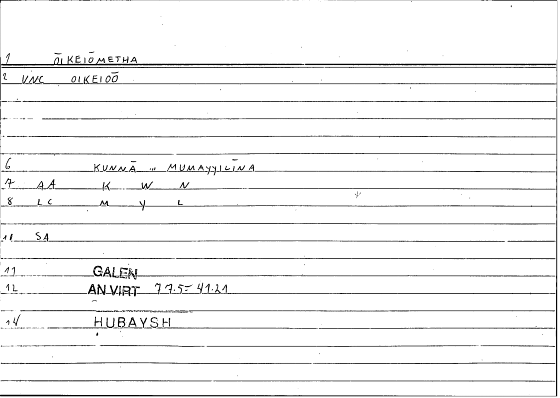 1 ŌIKEIŌMETHA
2 VNC OIKEIOŌ
6 KUNNĀ ... MUMAYYILĪNA
7 AA K W N
8 LC M Y L
11 SA
11 GALEN
12 AN VIRT 77.5 = 41.21
14 HUBAYSH